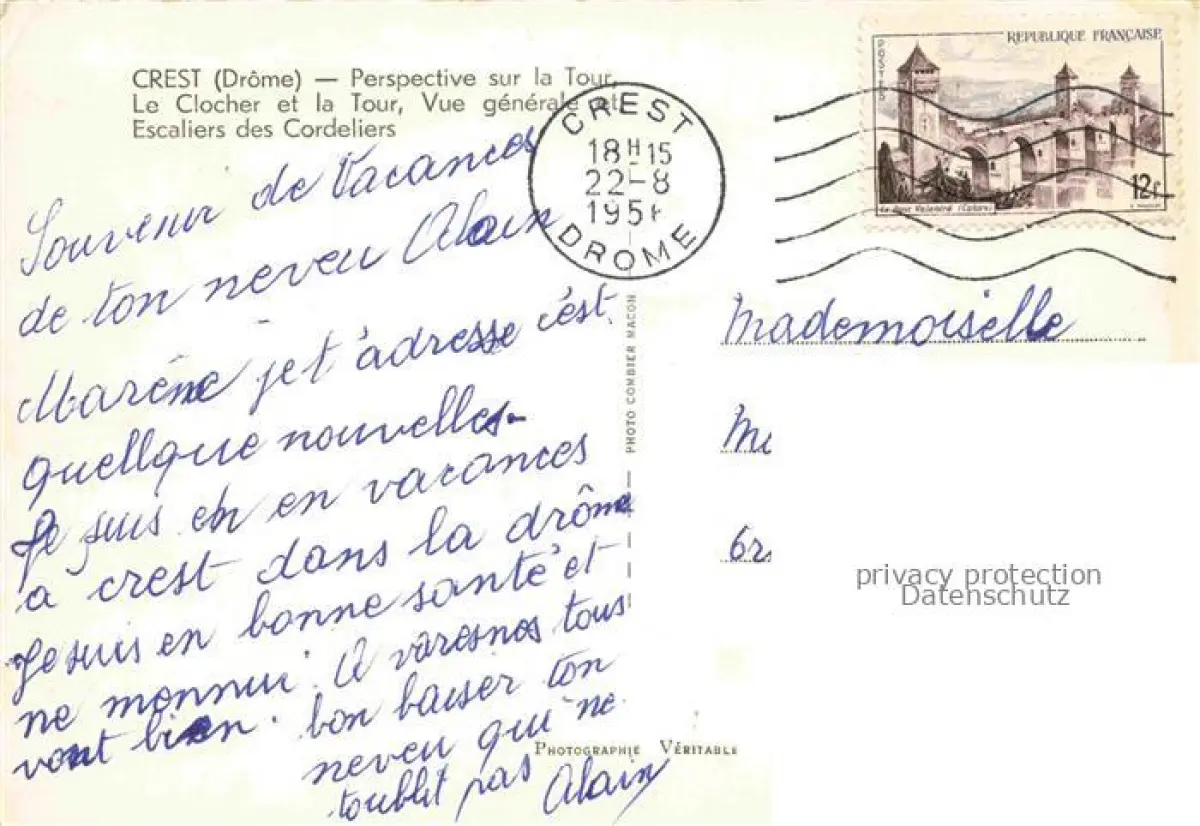 CREST (Drôme) — Perspective sur la Tour,
Le Clocher et la Tour, Vue générale et
Escaliers des Cordeliers
Souvenir de Vacances
de ton neveu Alain
Marêne je t'adresse c'est
quellque nouvelles.
Je suis en en vacances
a crest dans la drôme
Je suis en bonne santé et
ne monnui. A varesnes tous
vont bien. bon baiser ton
neveu qui ne
toublit pas Alain
CREST
18H15
22-8
195
DROME
PHOTO COMBIER MACON
PHOTOGRAPHIE VÉRITABLE
REPUBLIQUE FRANÇAISE
POSTES
12f
Mademoiselle
privacy protection
Datenschutz